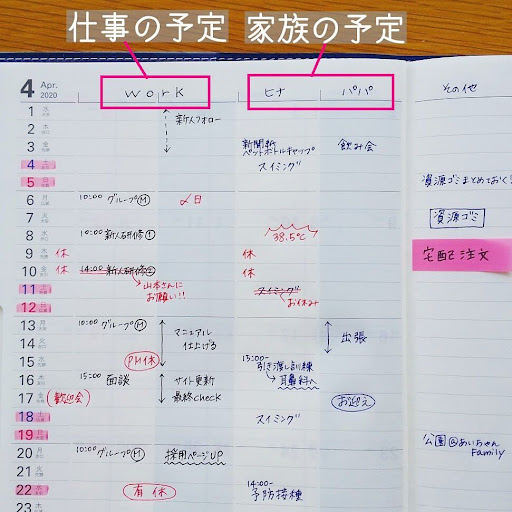 仕事の予定 家族の予定
4 Apr. 2020
work
ヒナ
パパ
その他
1 水
新人フォロー
2 木
3 金
新聞紙
ペットボトルキャップ
スイミング
飲み会
4 土
5 日
資源ゴミまとめておく!
6 月
10:00 グループM
〆日
資源ゴミ
7 火
8 水
10:00 新人研修①
38.5℃
9 木
休
休
宅配注文
10 金
休
14:00 新人研修②
休
山本さんに
お願い!!
11 土
スイミング
お休み
12 日
13 月
10:00 グループM
マニュアル
仕上げる
出張
14 火
15 水
PM休
15:00-
引き渡し訓練
耳鼻科へ
16 木
15:00 面談
サイト更新
最終check
17 金
(歓迎会)
お迎え
18 土
スイミング
19 日
公園@あいちゃん
Family
20 月
10:00 グループM
採用ページUP
21 火
22 水
有休
14:00-
予防接種
23 木